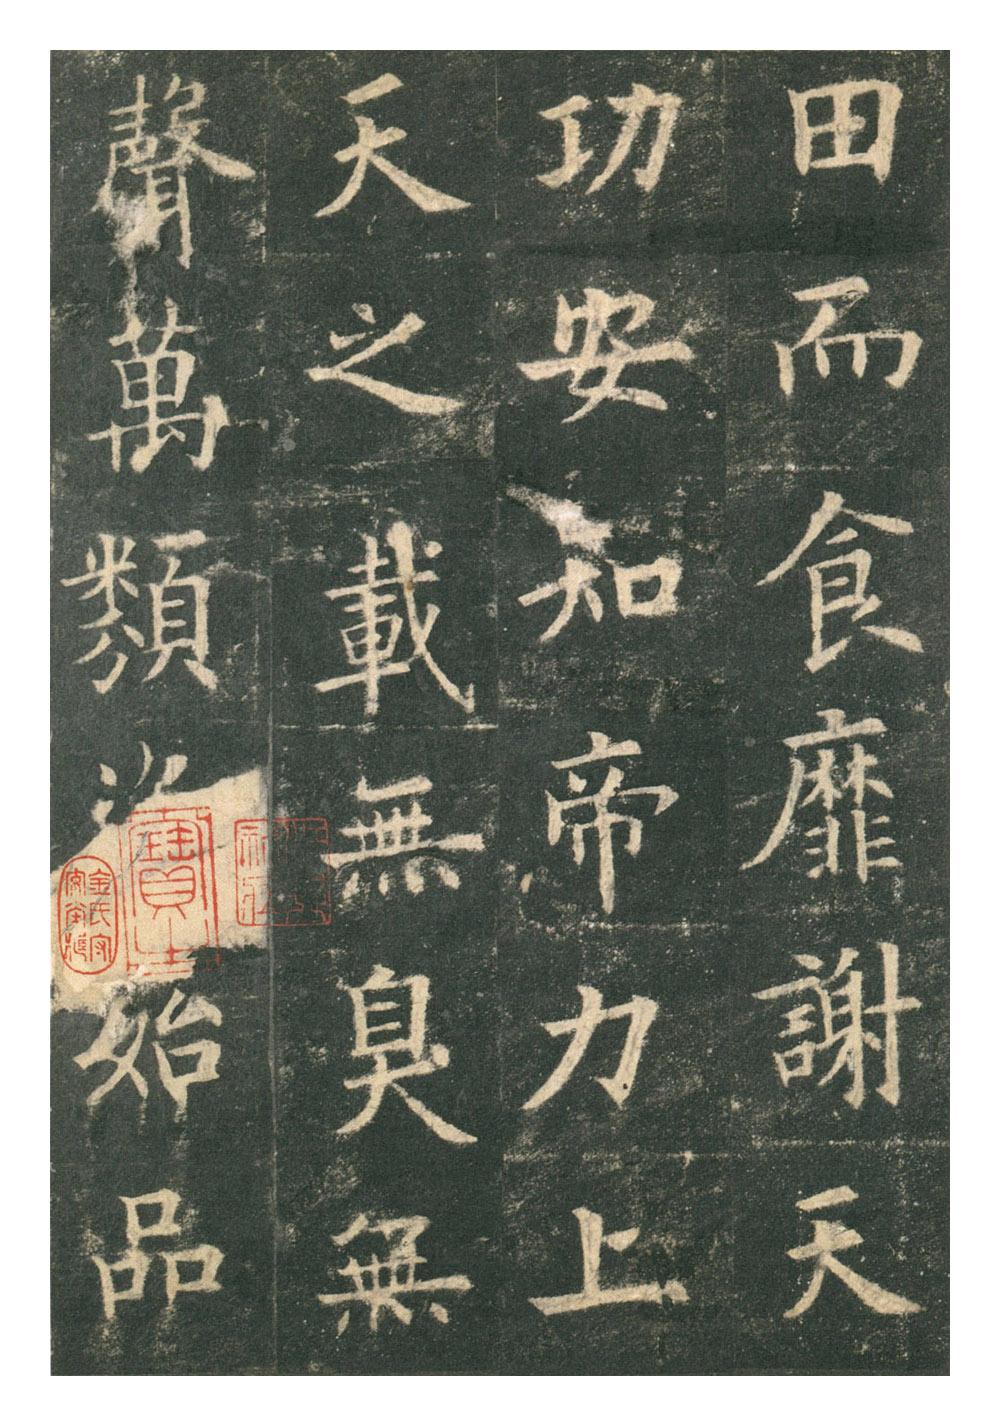 田而食靡謝天
功安知帝力上
天之載無臭無
聲萬類始品